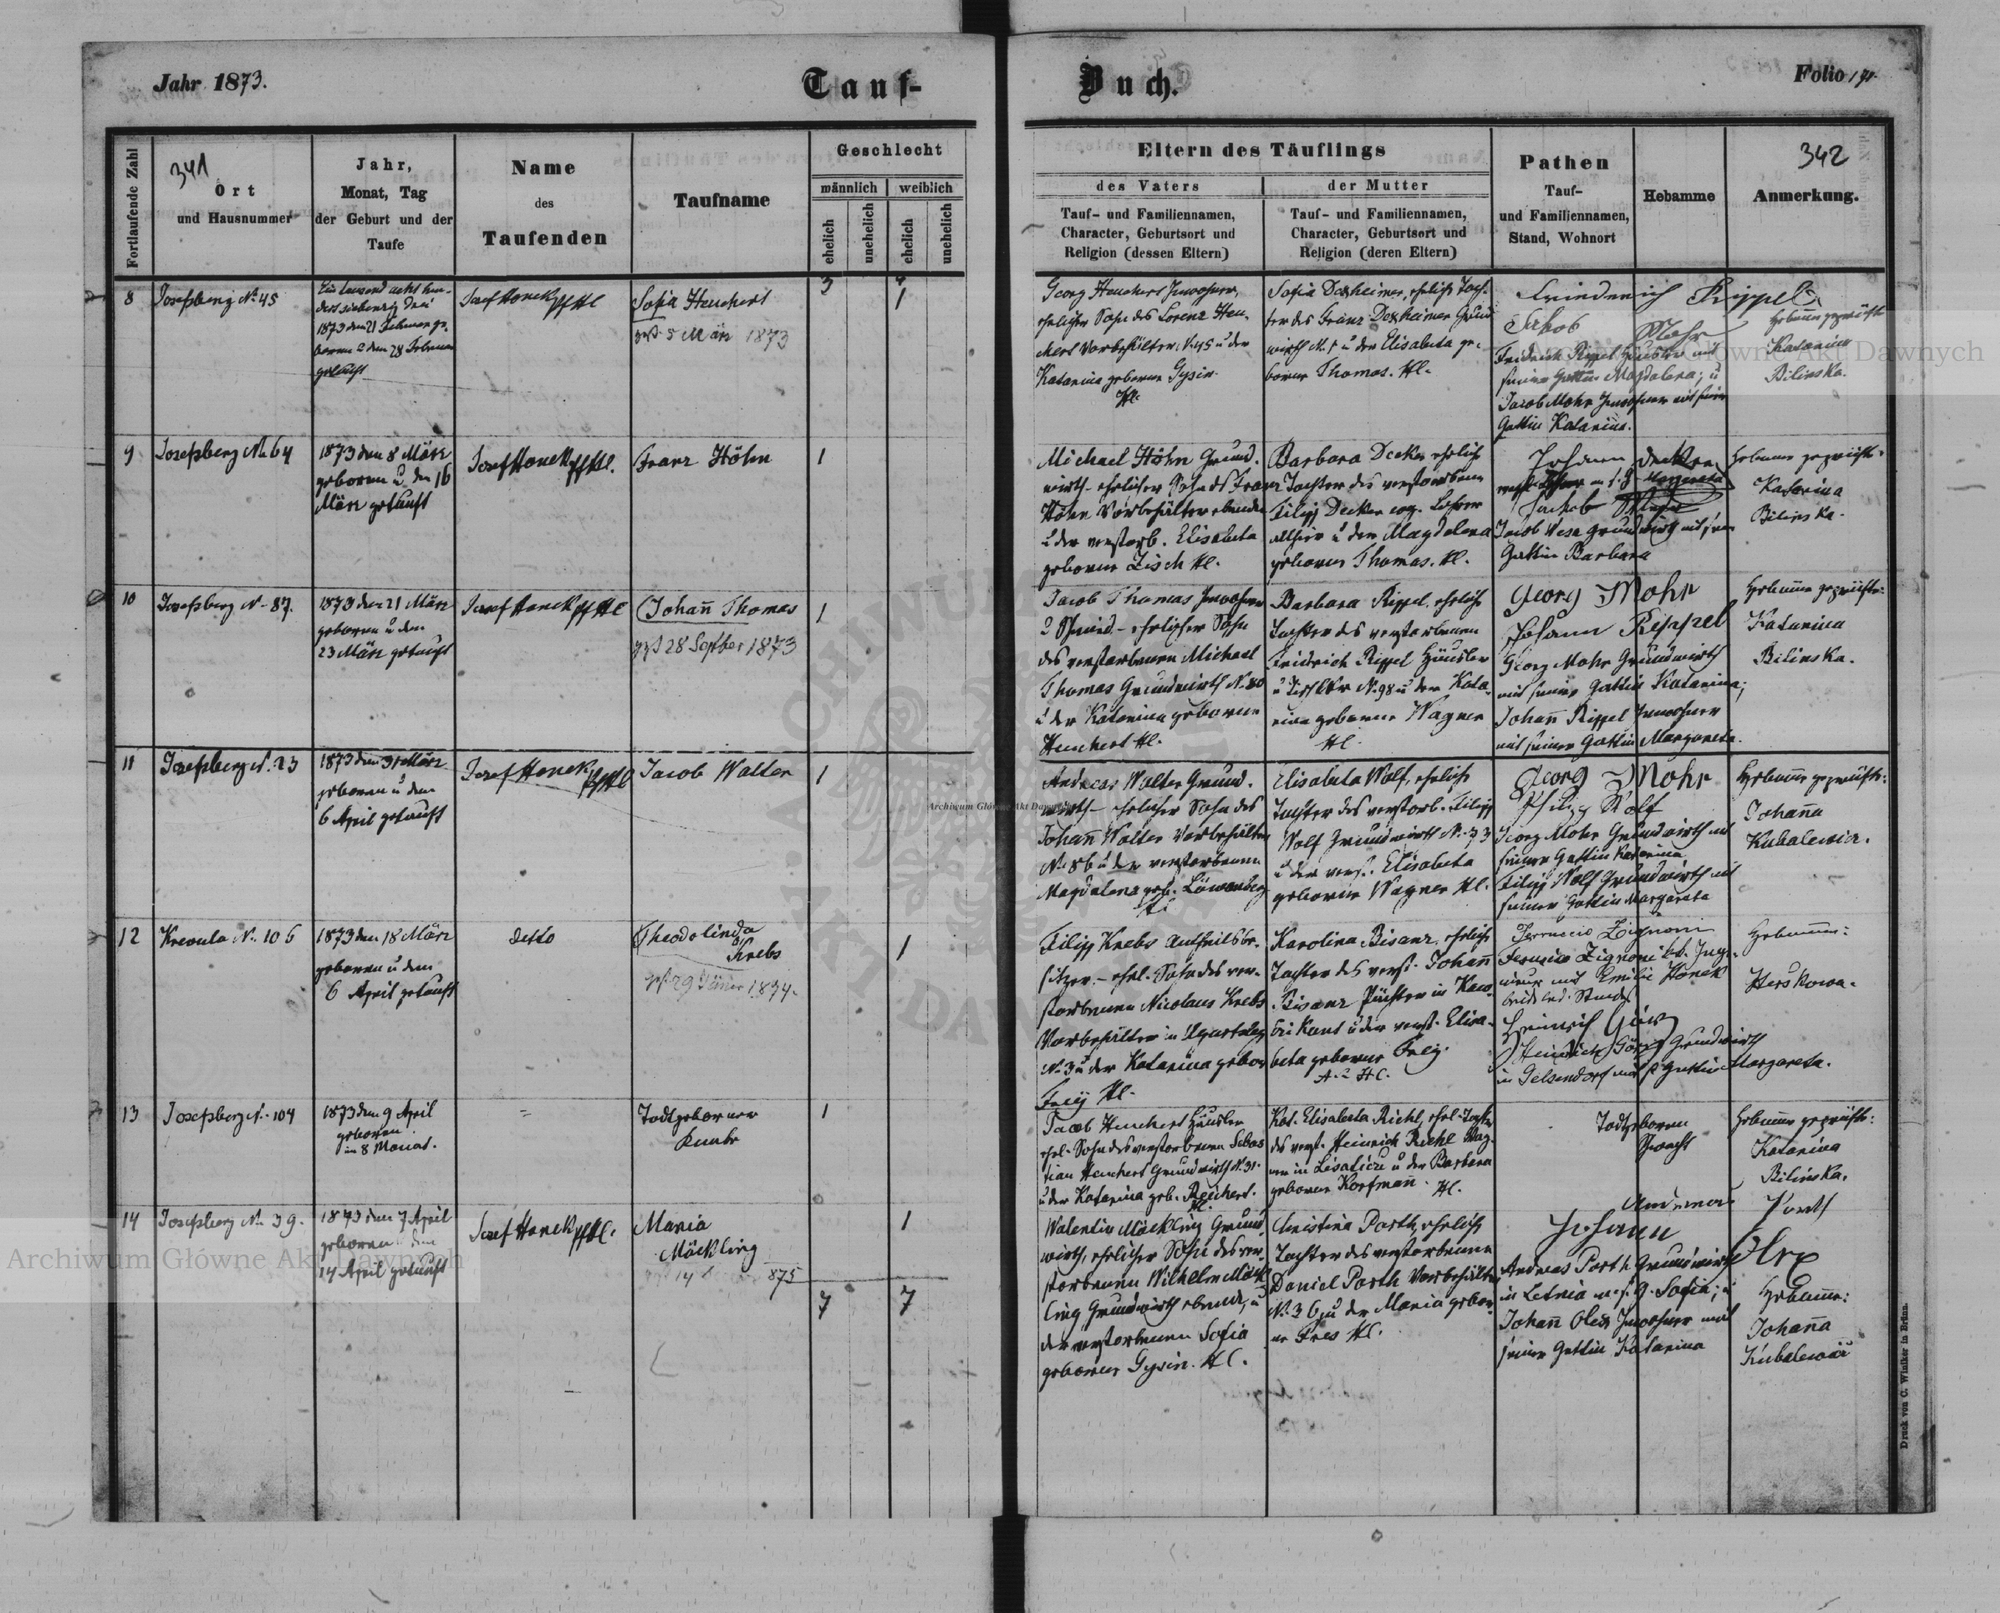 Jahr 1873.
Tauf-
Buch.
Folio 171.
Fortlaufende Zahl
341
Ort
und Hausnummer
Jahr,
Monat, Tag
der Geburt und der
Taufe
Name
des
Taufenden
Taufname
Geschlecht
männlich
weiblich
ehelich
unehelich
ehelich
unehelich
Eltern des Täuflings
des Vaters
der Mutter
Tauf- und Familiennamen,
Character, Geburtsort und
Religion (dessen Eltern)
Tauf- und Familiennamen,
Character, Geburtsort und
Religion (deren Eltern)
Pathen
Tauf-
und Familiennamen,
Stand, Wohnort
Hebamme
342
Anmerkung.
3
4
8
Josefsberg N. 45
Ein tausend acht hun-
dert siebenzig drei
1873 den 21 Februar ge-
boren u den 28 Februar
getauft
Josef Honek
Sofia Heuchert
gest 5 März 1873
1
Georg Heuchert Inwohner,
ehelicher Sohn des Lorenz Heu-
chert Vorbehälter N. 45 u der
Katarina geborne Gysin.
Hl.
Sofia Dexheimer, ehelich Toch-
ter des Franz Dexheimer Grund
wirth N. 1 u der Elisabeta ge-
borne Thomas. Hl.
Friederich Rippel
Jakob Mohr
Fridrich Rippel Häusler mit
seiner Gattin Magdalena; u
Jacob Mohr Inwohner mit seiner
Gattin Katarina.
Hebamme geprüfte
Katarina
Bilinska.
9
Josefsberg N. 64
1873 den 8 März
geboren u den 16
März getauft
Josef Honek
Franz Höhn
1
Michael Höhn Grund-
wirth - ehelicher Sohn des Franz
Höhn Vorbehälter ebenda
u der verstorb. Elisabeta
geborne Zisch Hl.
Barbara Decker ehelich
Tochter des verstorbenen
Filipp Decker evg. Lehrer
allhier u der Magdalena
geborne Thomas. Hl.
Johann Decker
Jacob
Jacob Wesa Grundwirth mit seiner
Gattin Barbara
Hebamme geprüfte
Katarina
Bilinska.
10
Josefsberg N. 87.
1873 den 21 März
geboren u den
23 März getauft
Josef Honek
Johann Thomas
gest 28 Septber 1873
1
Jacob Thomas Inwohner
u Schmied - ehelicher Sohn
des verstorbenen Michael
Thomas Grundwirth N. 80
u der Katarina geborne
Heuchert Hl.
Barbara Rippel, ehelich
Tochter des verstorbenen
Fridrich Rippel Häusler
u Tischler N. 98 u der Kata-
rina geborne Wagner
Hl.
Georg Mohr
Johann Rippel
Georg Mohr Grundwirth
mit seiner Gattin Katarina;
Johann Rippel Inwohner
mit seiner Gattin Margareta.
Hebamme geprüfte:
Katarina
Bilinska.
11
Josefsberg N. 23
1873 den 31 März
geboren u den
6 April getauft
Josef Honek
Jacob Walter
1
Andreas Walter Grund-
wirth - ehelicher Sohn des
Johann Walter Vorbehälter
N. 86 u der verstorbenen
Magdalena geb. Löwenberg
Elisabeta Wolf, ehelich
Tochter des verstorb. Filipp
Wolf Grundwirth N. 73
u der verst. Elisabeta
geborne Wagner Hl.
Georg Mohr
Philip Wolf
Georg Mohr Grundwirth mit
seiner Gattin Katarina
Filipp Wolf Grundwirth mit
seiner Gattin Margareta
Hebamme geprüfte:
Johanna
Kubalewicz.
12
Kreoula N. 106
1873 den 18 März
geboren u den
6 April getauft
detto
Theodolinda
Krebs
gest 29 Jäner 1874.
1
Filipp Krebs Antheilsbe-
sitzer - ehel. Sohn des ver-
storbenen Nicolaus Krebs
Vorbehälter in Ugartsberg
N. 3 u der Katarina gebor
Frey Hl.
Karolina Bisanz, ehelich
Tochter des verst. Johann
Bisanz Pächter in
u der verst. Elisa-
beta geborne Frey.
A. u HC.
Ferruccio Zignoni
Ferrucio Zignoni
mit Emilie Honek
beide led. Standes
Heinrich Görz
Heinrich Görz Grundwirth
in Gelsendorf mit s. Gattin Margareta.
Hebamme:
Herskowa.
13
Josefsberg N. 104
1873 den 9 April
geboren
im 8 Monat.
=
Todtgeborner
Knabe
1
Jacob Heuchert Häusler
ehel. Sohn des verstorbenen Sebas
tian Heuchert Grundwirth N. 31.
u der Katarina geb. Reichert.
Hl.
Kat. Elisabeta Riehl, ehel. Tochter
des verst. Heinrich Riehl Wag-
ner in Lisaticze u der Barbara
geborne Korfmann. Hl.
Todtgeboren
Hebamme geprüfte:
Katarina
Bilinska.
14
Josefsberg N. 39.
1873 den 7 April
geboren u den
14 April getauft
Josef Honek
Maria
Möckling
1875
1
7
7
Valentin Möckling Grund-
wirth, ehelicher Sohn des ver-
storbenen Wilhelm Möck
ling Grundwirth ebenda, u
der verstorbenen Sofia
geborne Gysin. Hl.
Christina Porth, ehelich
Tochter des verstorbenen
Daniel Porth Vorbehälter
N. 36 u der Maria gebor-
ne Fres Hl.
Andreas Porth
Johann Olex
Andreas Porth Grundwirth
in Letnia m. s. G. Sofia; u
Johann Olex Inwohner mit
seiner Gattin Katarina
Hebamme:
Johanna
Kubalewicz
Druck von C. Winiker in Brünn.
Archiwum Główne Akt Dawnych
Archiwum Główne Akt Dawnych
Archiwum Główne Akt Dawnych